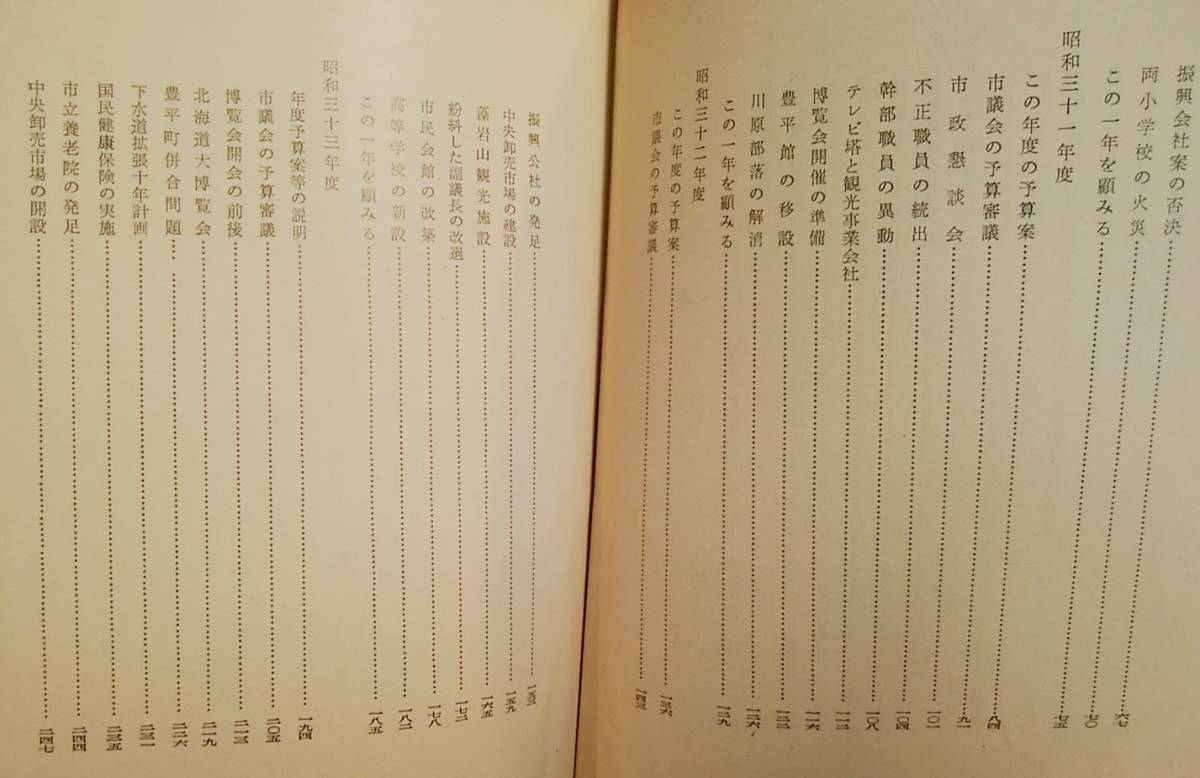 振興会社案の否決……六七
両小学校の火災……七〇
この一年を顧みる……七五
昭和三十一年度
この年度の予算案
市議会の予算審議……八四
市政懇談会……九一
不正職員の続出……一〇一
幹部職員の異動……一〇四
テレビ塔と観光事業会社……一〇八
博覧会開催の準備
豊平館の移設
川原部落の解消……一二六
この一年を顧みる……一二九
昭和三十二年度
この年度の予算案……一三六
市議会の予算審議……一四三
振興公社の発足……一五三
中央卸売市場の建設……一五九
藻岩山観光施設……一六五
紛糾した副議長の改選……一七二
市民会館の改築……一七八
高等学校の新設……一八二
この一年を顧みる……一八五
昭和三十三年度
年度予算案等の説明……一九四
市議会の予算審議……二〇五
博覧会開会の前後……二一三
北海道大博覧会……二一九
豊平町併合問題……二二六
下水道拡張十年計画……二三一
国民健康保険の実施……二三五
市立養老院の発足……二四四
中央卸売市場の開設……二四七